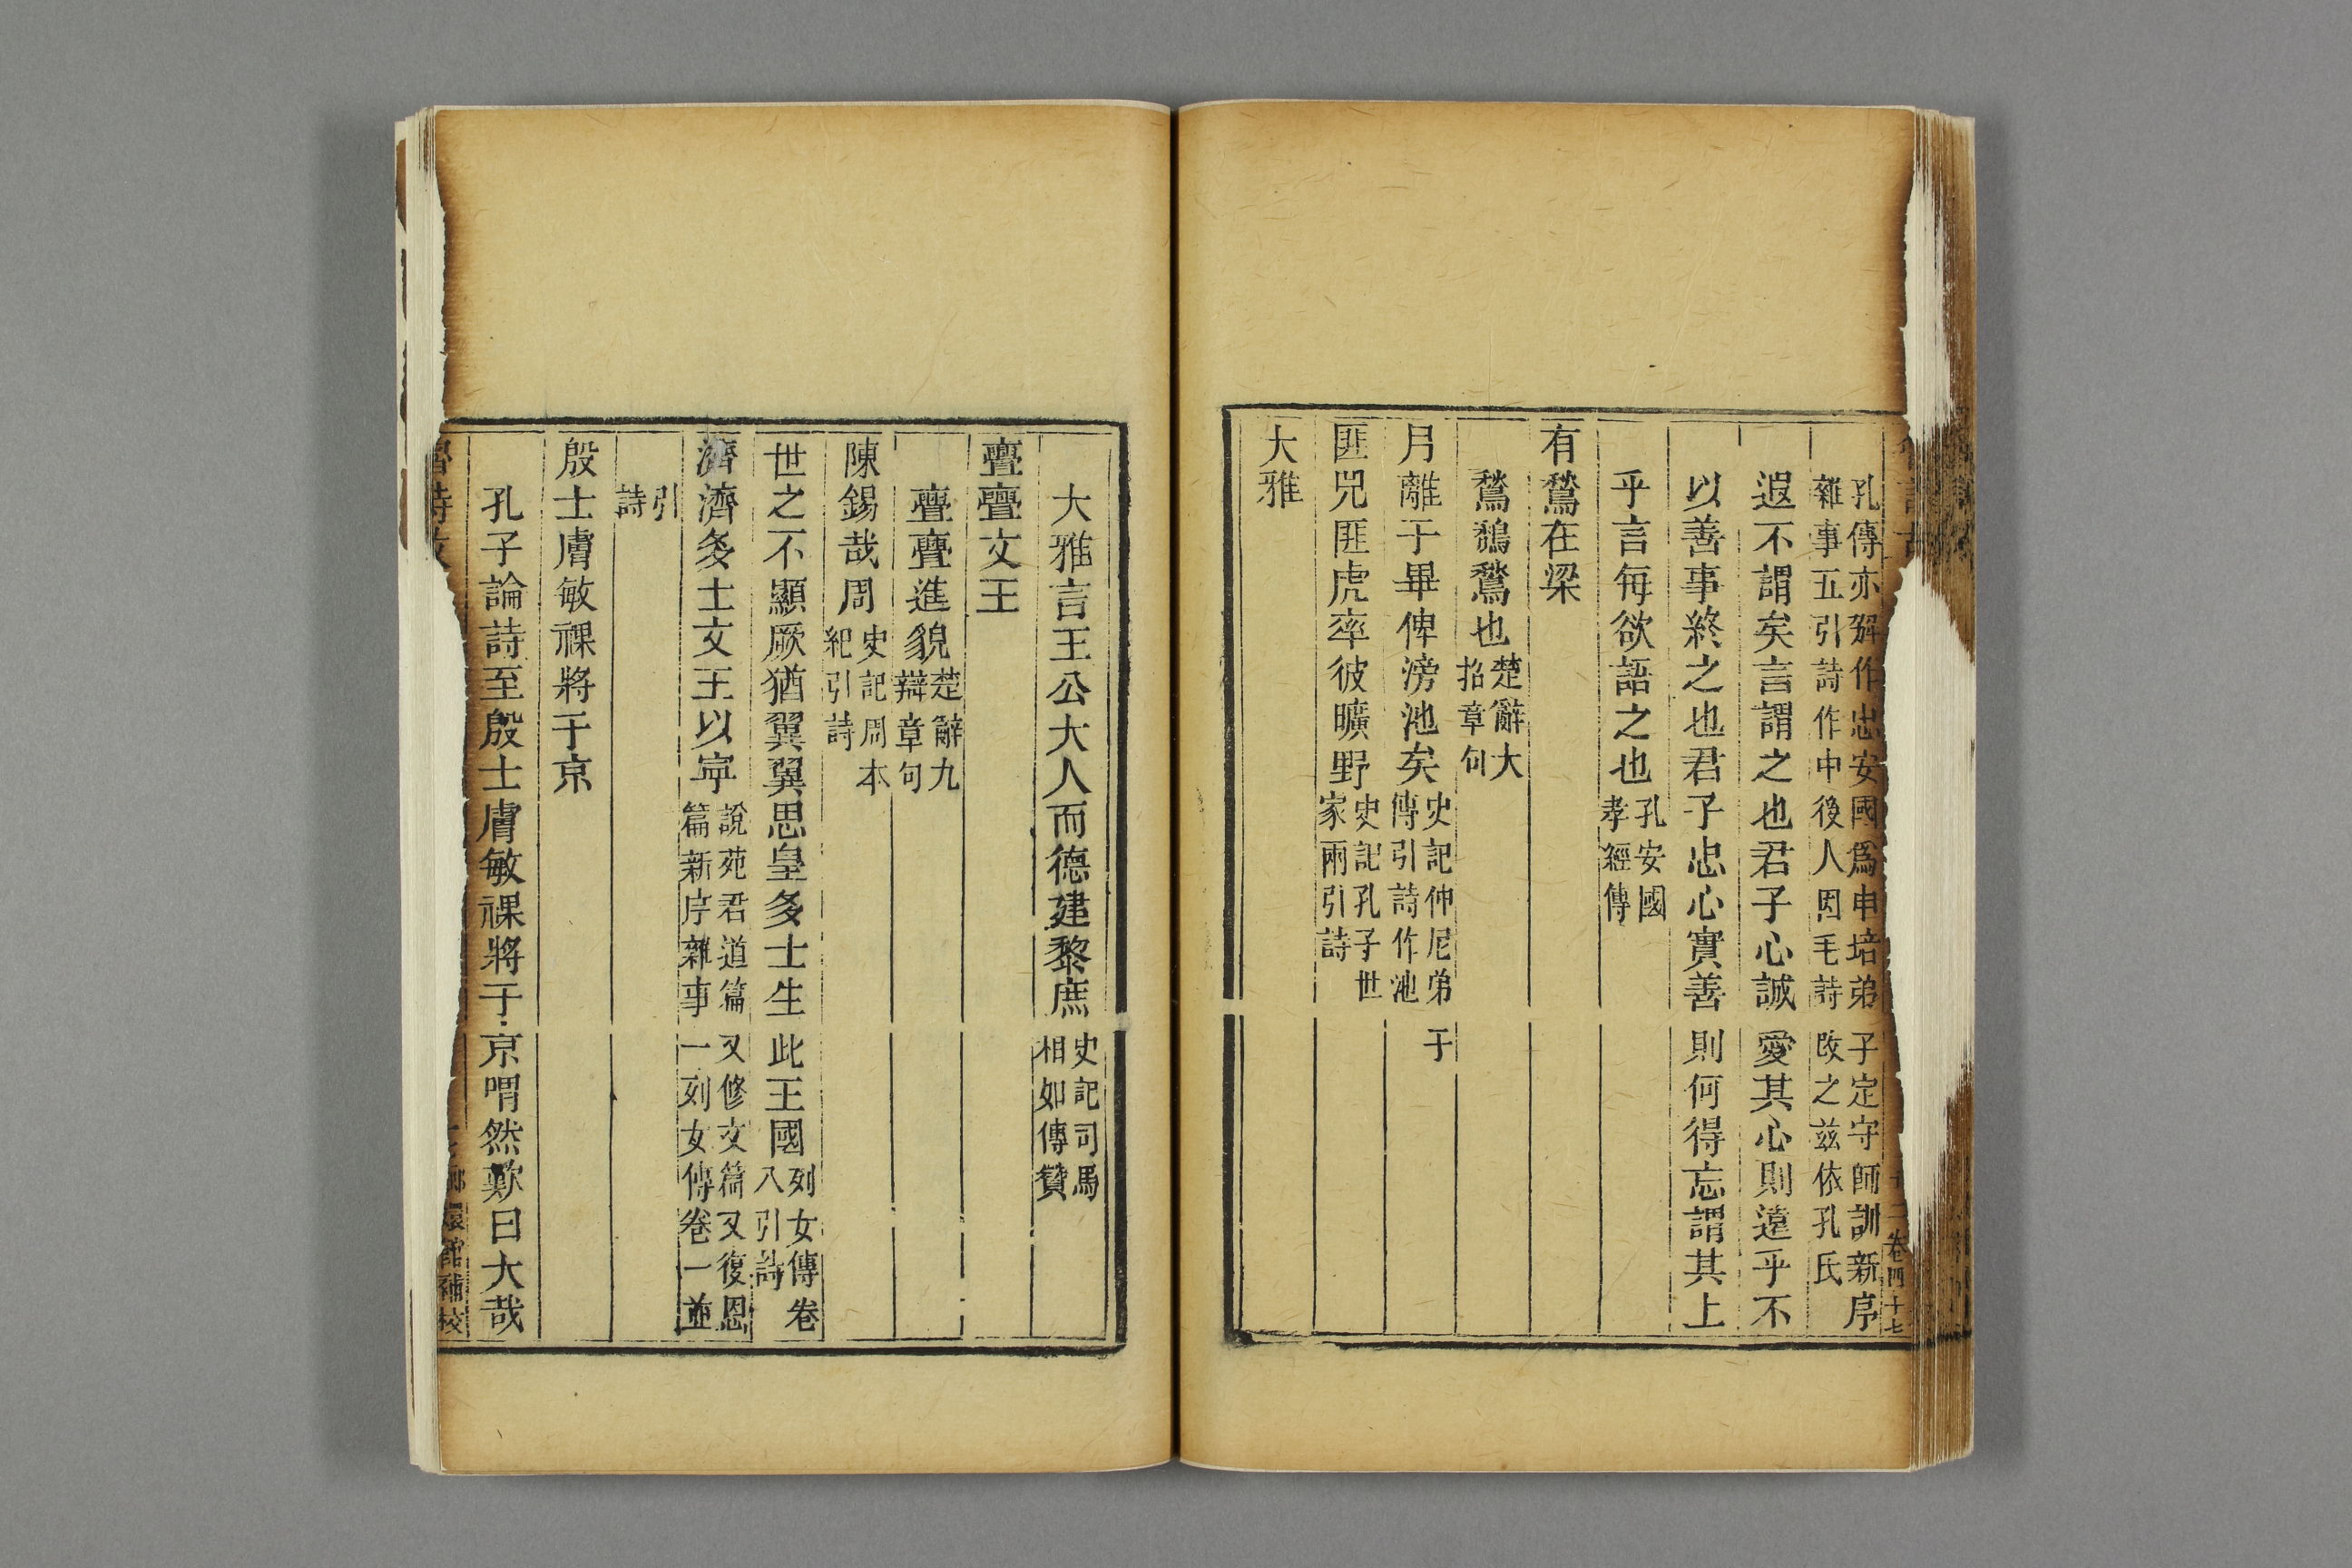 孔傳亦解作忠安國爲申培弟子定守師訓新序
雜事五引詩作中後人因毛詩改之兹依孔氏
遐不謂矣言謂之也君子心誠愛其心則遠乎不
以善事終之也君子忠心實善則何得忘謂其上
乎言每欲語之也孔安國
孝經傳
有鶖在梁
鶖鶬鶖也楚辭大
招章句
月離于畢俾滂池矣史記仲尼弟子
傳引詩作池
匪兕匪虎率彼曠野史記孔子世
家兩引詩
大雅
卷四十七
大雅言王公大人而德建黎庶史記司馬
相如傳贊
亹亹文王
亹亹進貌楚辭九
辯章句
陳錫哉周史記周本
紀引詩
世之不顯厥猶翼翼思皇多士生此王國列女傳卷
八引詩
濟濟多士文王以寧說苑君道篇又修文篇又復恩
篇新序雜事一列女傳卷一並
引
詩
殷士膚敏祼將于京
孔子論詩至殷士膚敏祼將于京喟然歎曰大哉
嬛館補校